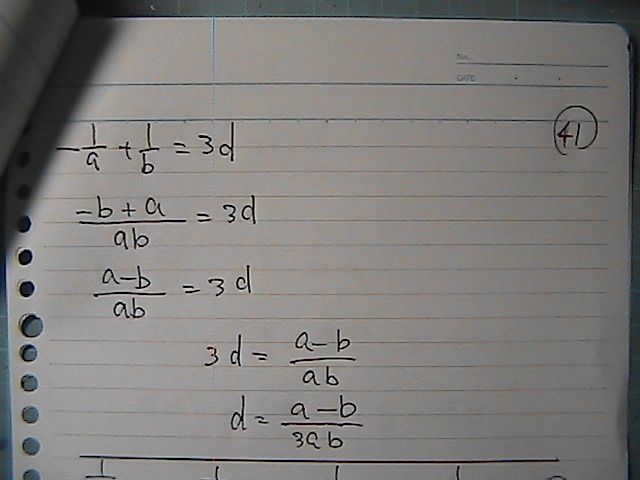 No.
DATE
41
-1/a + 1/b = 3d
(-b+a)/ab = 3d
(a-b)/ab = 3d
3d = (a-b)/ab
d = (a-b)/3ab